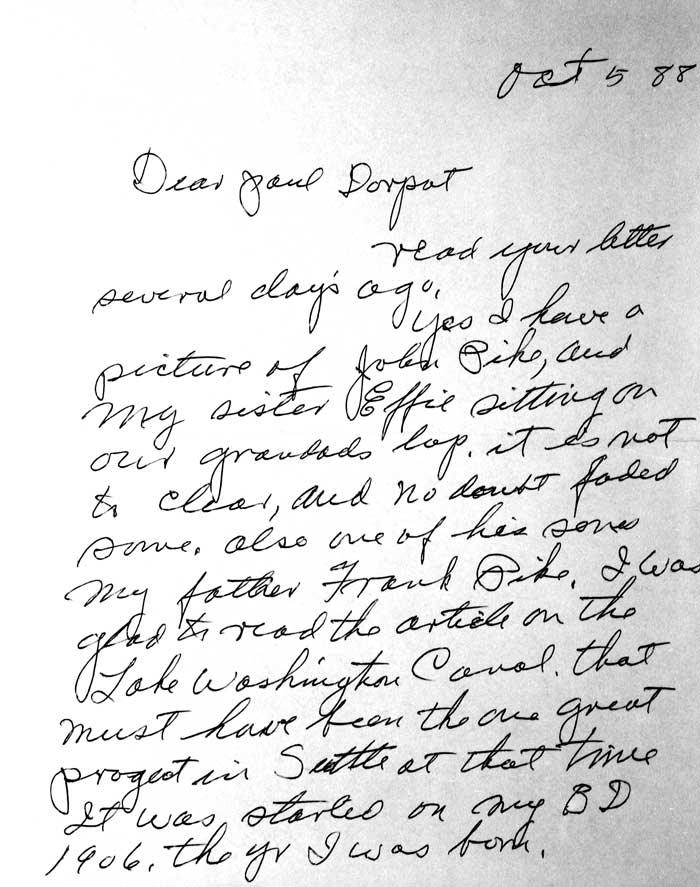 Oct 5 88
Dear Paul Dorpat
read your letter
several day's ago.
Yes I have a
picture of John Pike, and
my sister Effie sitting on
our grandads lap. it is not
to clear, and no doubt faded
some. also one of his sons
my father Frank Pike. I was
glad to read the article on the
Lake Washington Canal. that
must have been the one great
progect in Seattle at that time
It was started on my BD
1906. the yr I was born.